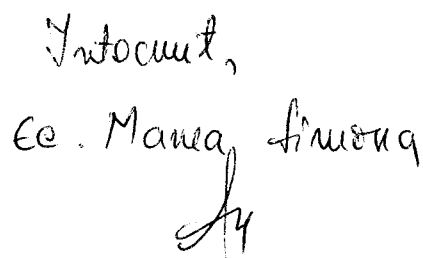 Intocmit,
Ec. Manea Simona